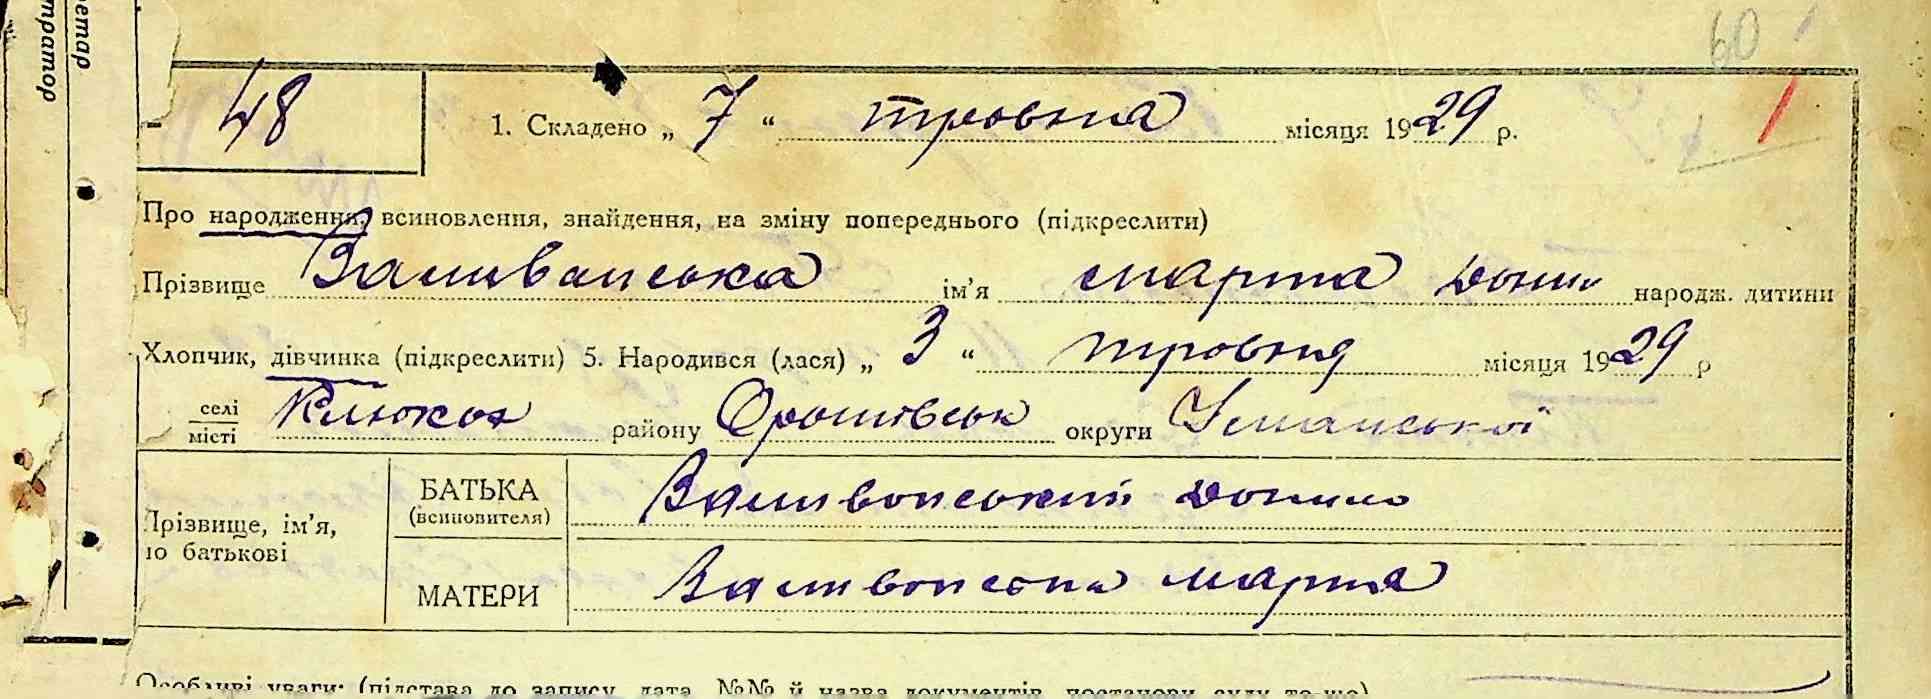 етар
тратор
60
48
1. Складено „ 7 “ травня місяця 1929 р.
Про народження, всиновлення, знайдення, на зміну попереднього (підкреслити)
Прізвище Заливанська ім'я марта Дани народж. дитини
Хлопчик, дівчинка (підкреслити) 5. Народився (лася) „ 3 “ травня місяця 1929 р
селі
місті
району округи Уманської
Прізвище, ім'я,
по батькові
БАТЬКА
(всиновителя)
Данило
МАТЕРИ
Особливі уваги: (підстава до запису, дата, №№ й назва документів, постанови суду то-що)